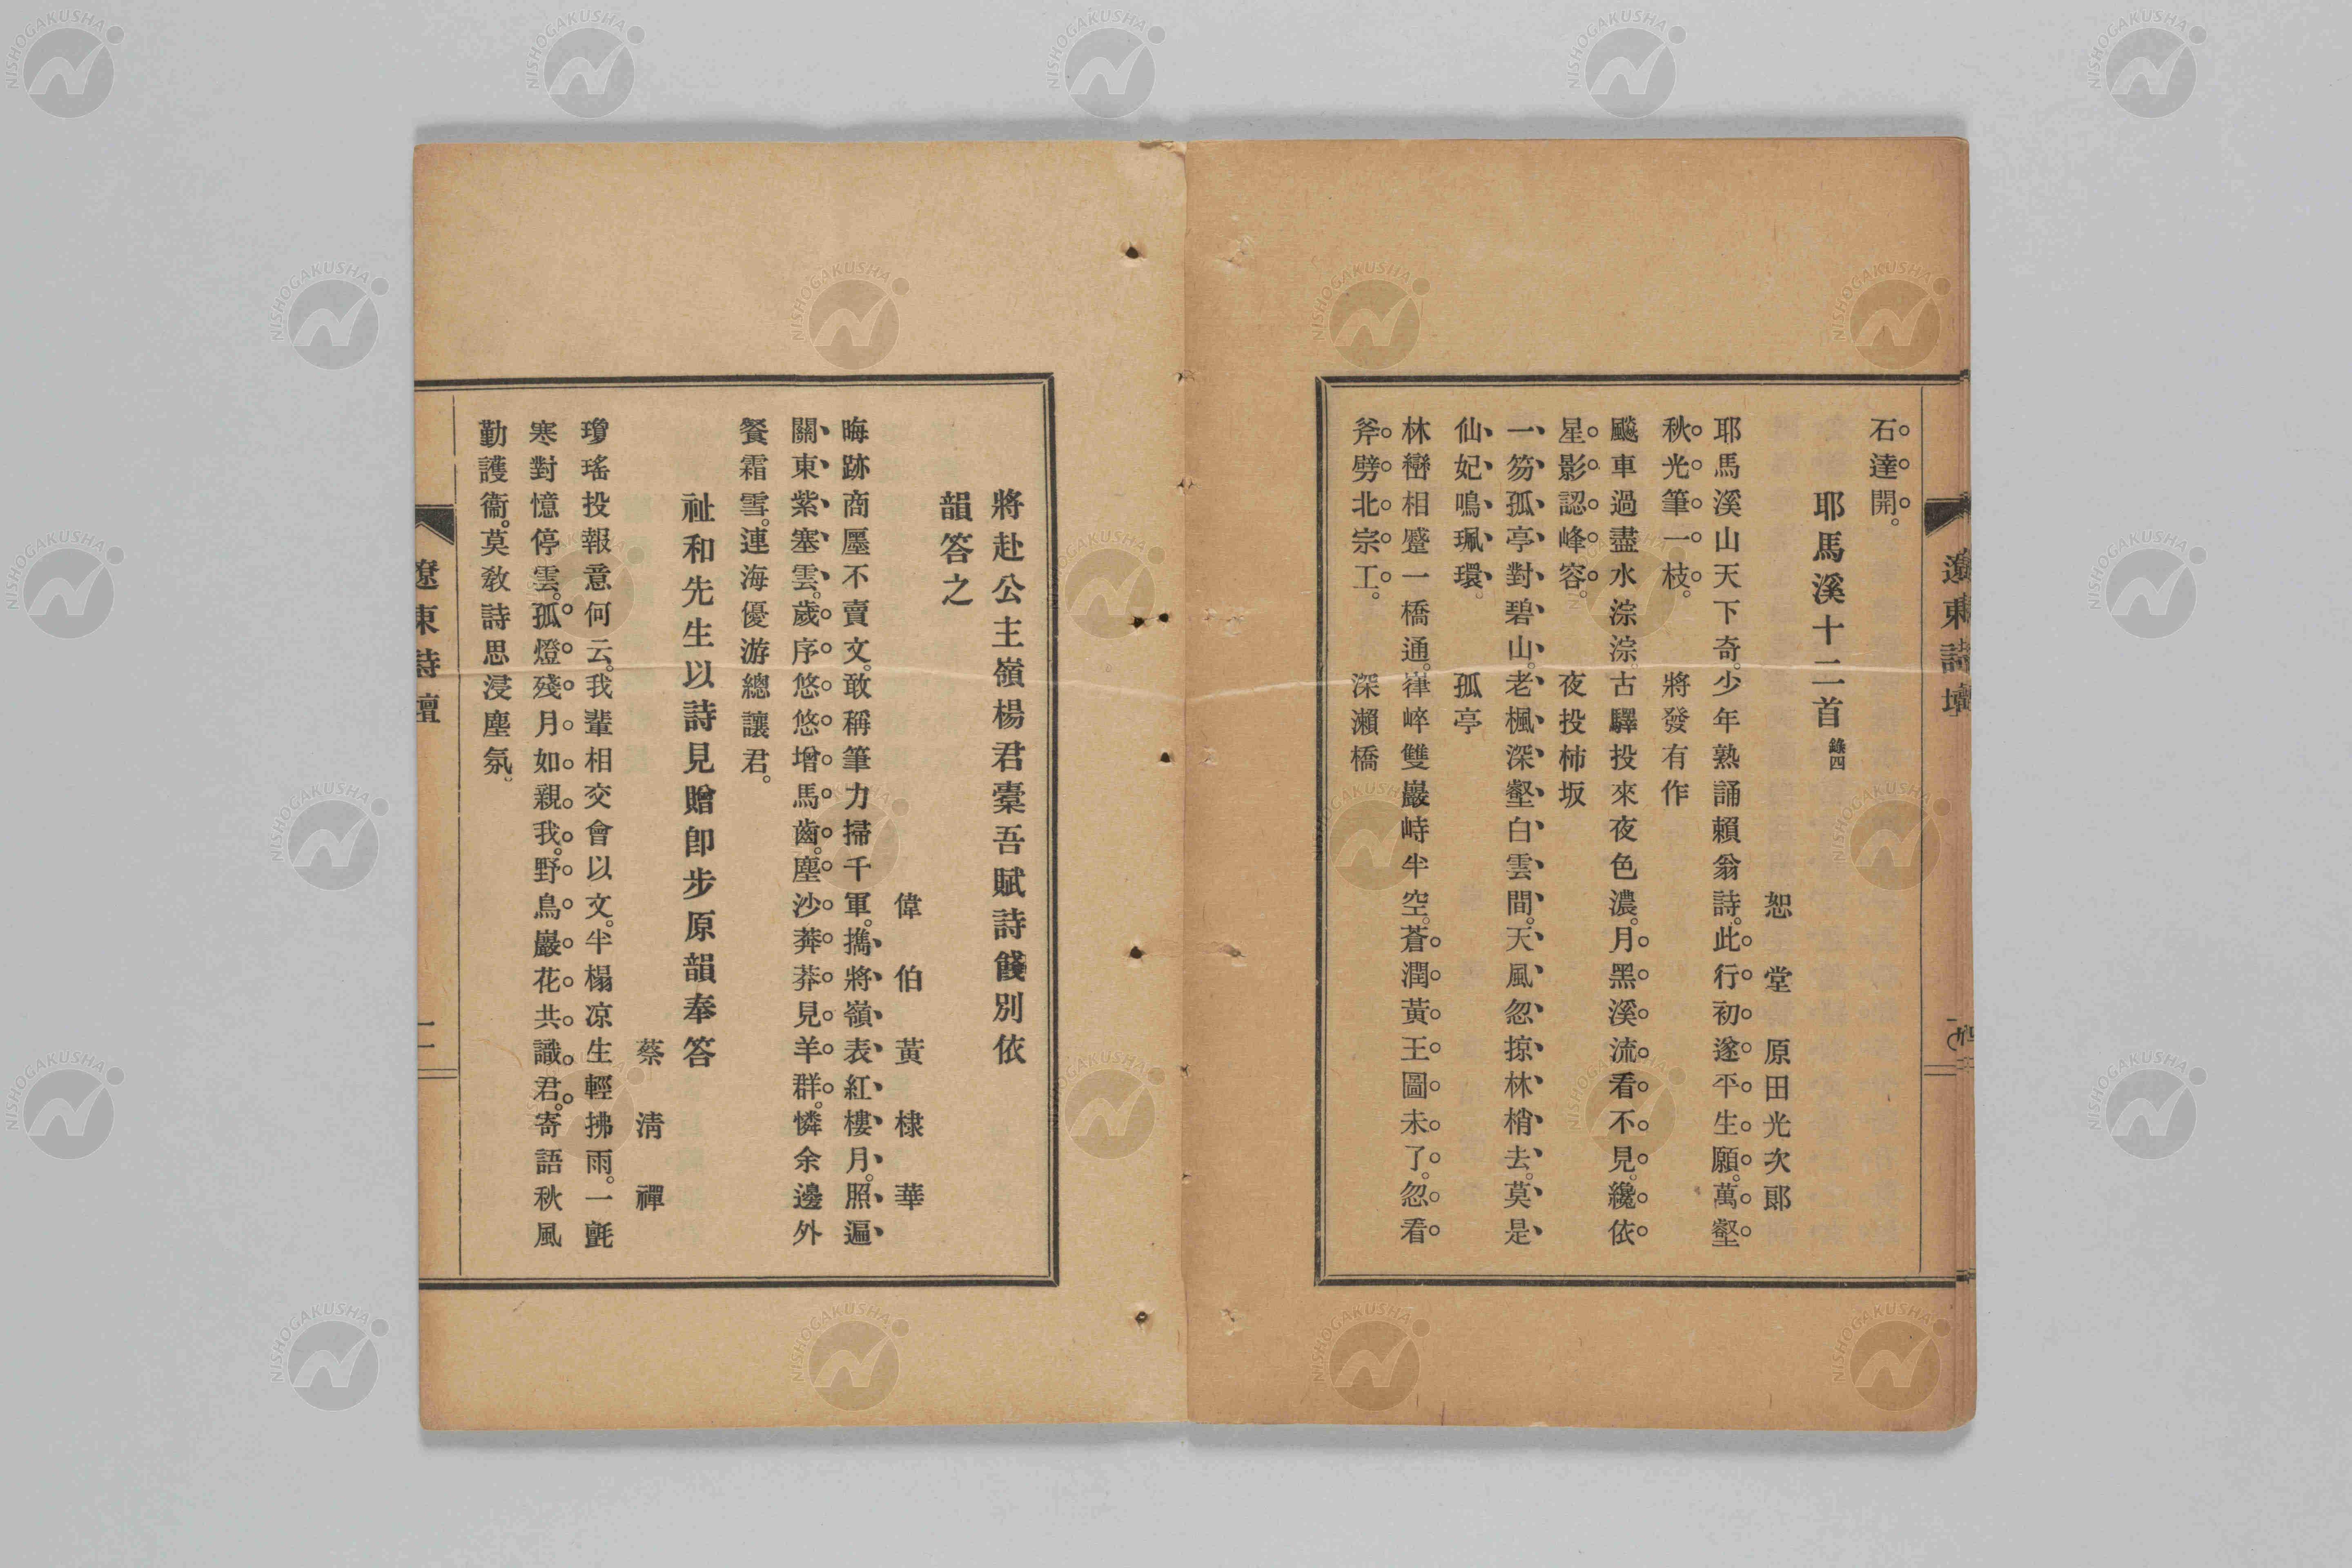 遼東詩壇
石達開。
耶馬溪十二首 錄四
恕堂 原田光次郎
耶馬溪山天下奇。少年熟誦賴翁詩。此行初遂平生願。萬壑
秋光筆一枝。 將發有作
飈車過盡水淙淙。古驛投來夜色濃。月黑溪流看不見。纔依
星影認峰容。 夜投柿坂
一笏孤亭對碧山。老楓深壑白雲間。天風忽掠林梢去。莫是
仙妃鳴珮環。 孤亭
林巒相蹙一橋通。嵂崒雙巖峙半空。蒼潤黃王圖未了。忽看
斧劈北宗工。 深瀨橋
將赴公主嶺楊君槖吾賦詩餞別依
韻答之
偉伯 黃棣華
晦跡商廛不賣文。敢稱筆力掃千軍。擕將嶺表紅樓月。照遍
關東紫塞雲。歲序悠悠增馬齒。塵沙莽莽見羊群。憐余邊外
餐霜雪。連海優游總讓君。
祉和先生以詩見贈卽步原韻奉答
蔡清禪
瓊瑤投報意何云。我輩相交會以文。半榻凉生輕拂雨。一氈
寒對憶停雲。孤燈殘月如親我。野鳥巖花共識君。寄語秋風
勤護衞。莫敎詩思浸塵氛。
遼東詩壇
二